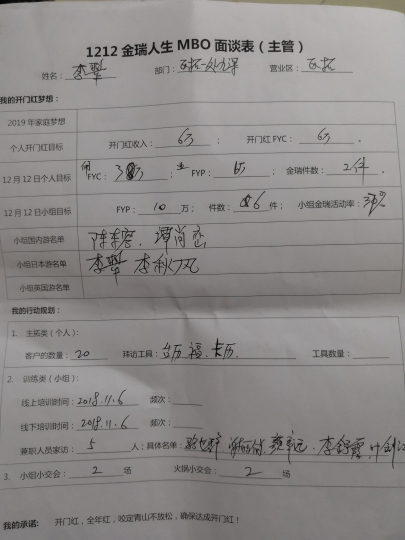 1212 金瑞人生 MBO 面谈表（主管）
姓名： 李翠 部门： 区拓一处九课 营业区： 区拓
我的开门红梦想：
2019 年家庭梦想
个人开门红目标 开门红收入： 6万 ； 开门红 FYC： 6万 。
12 月 12 日个人目标 FYC： 3万 ； FYP： 6万 ； 金瑞件数： 2件
12 月 12 日小组目标 FYP： 10 万； 件数： 6 件； 小组金瑞活动率：
小组国内游名单
小组日本游名单 李翠 李秋凤
小组英国游名单
我的行动规划：
1. 主拓类（个人）：
客户的数量： 20 拜访工具： 台历、福、卡历 工具数量：
2. 训练类（小组）：
线上培训时间： 2018.11.6 频次：
线下培训时间： 2018.11.6 频次：
兼职人员家访： 5 人；具体名单：
3. 小组小交会： 2 场 火锅小交会： 2 场
我的承诺： 开门红，全年红，咬定青山不放松，确保达成开门红！